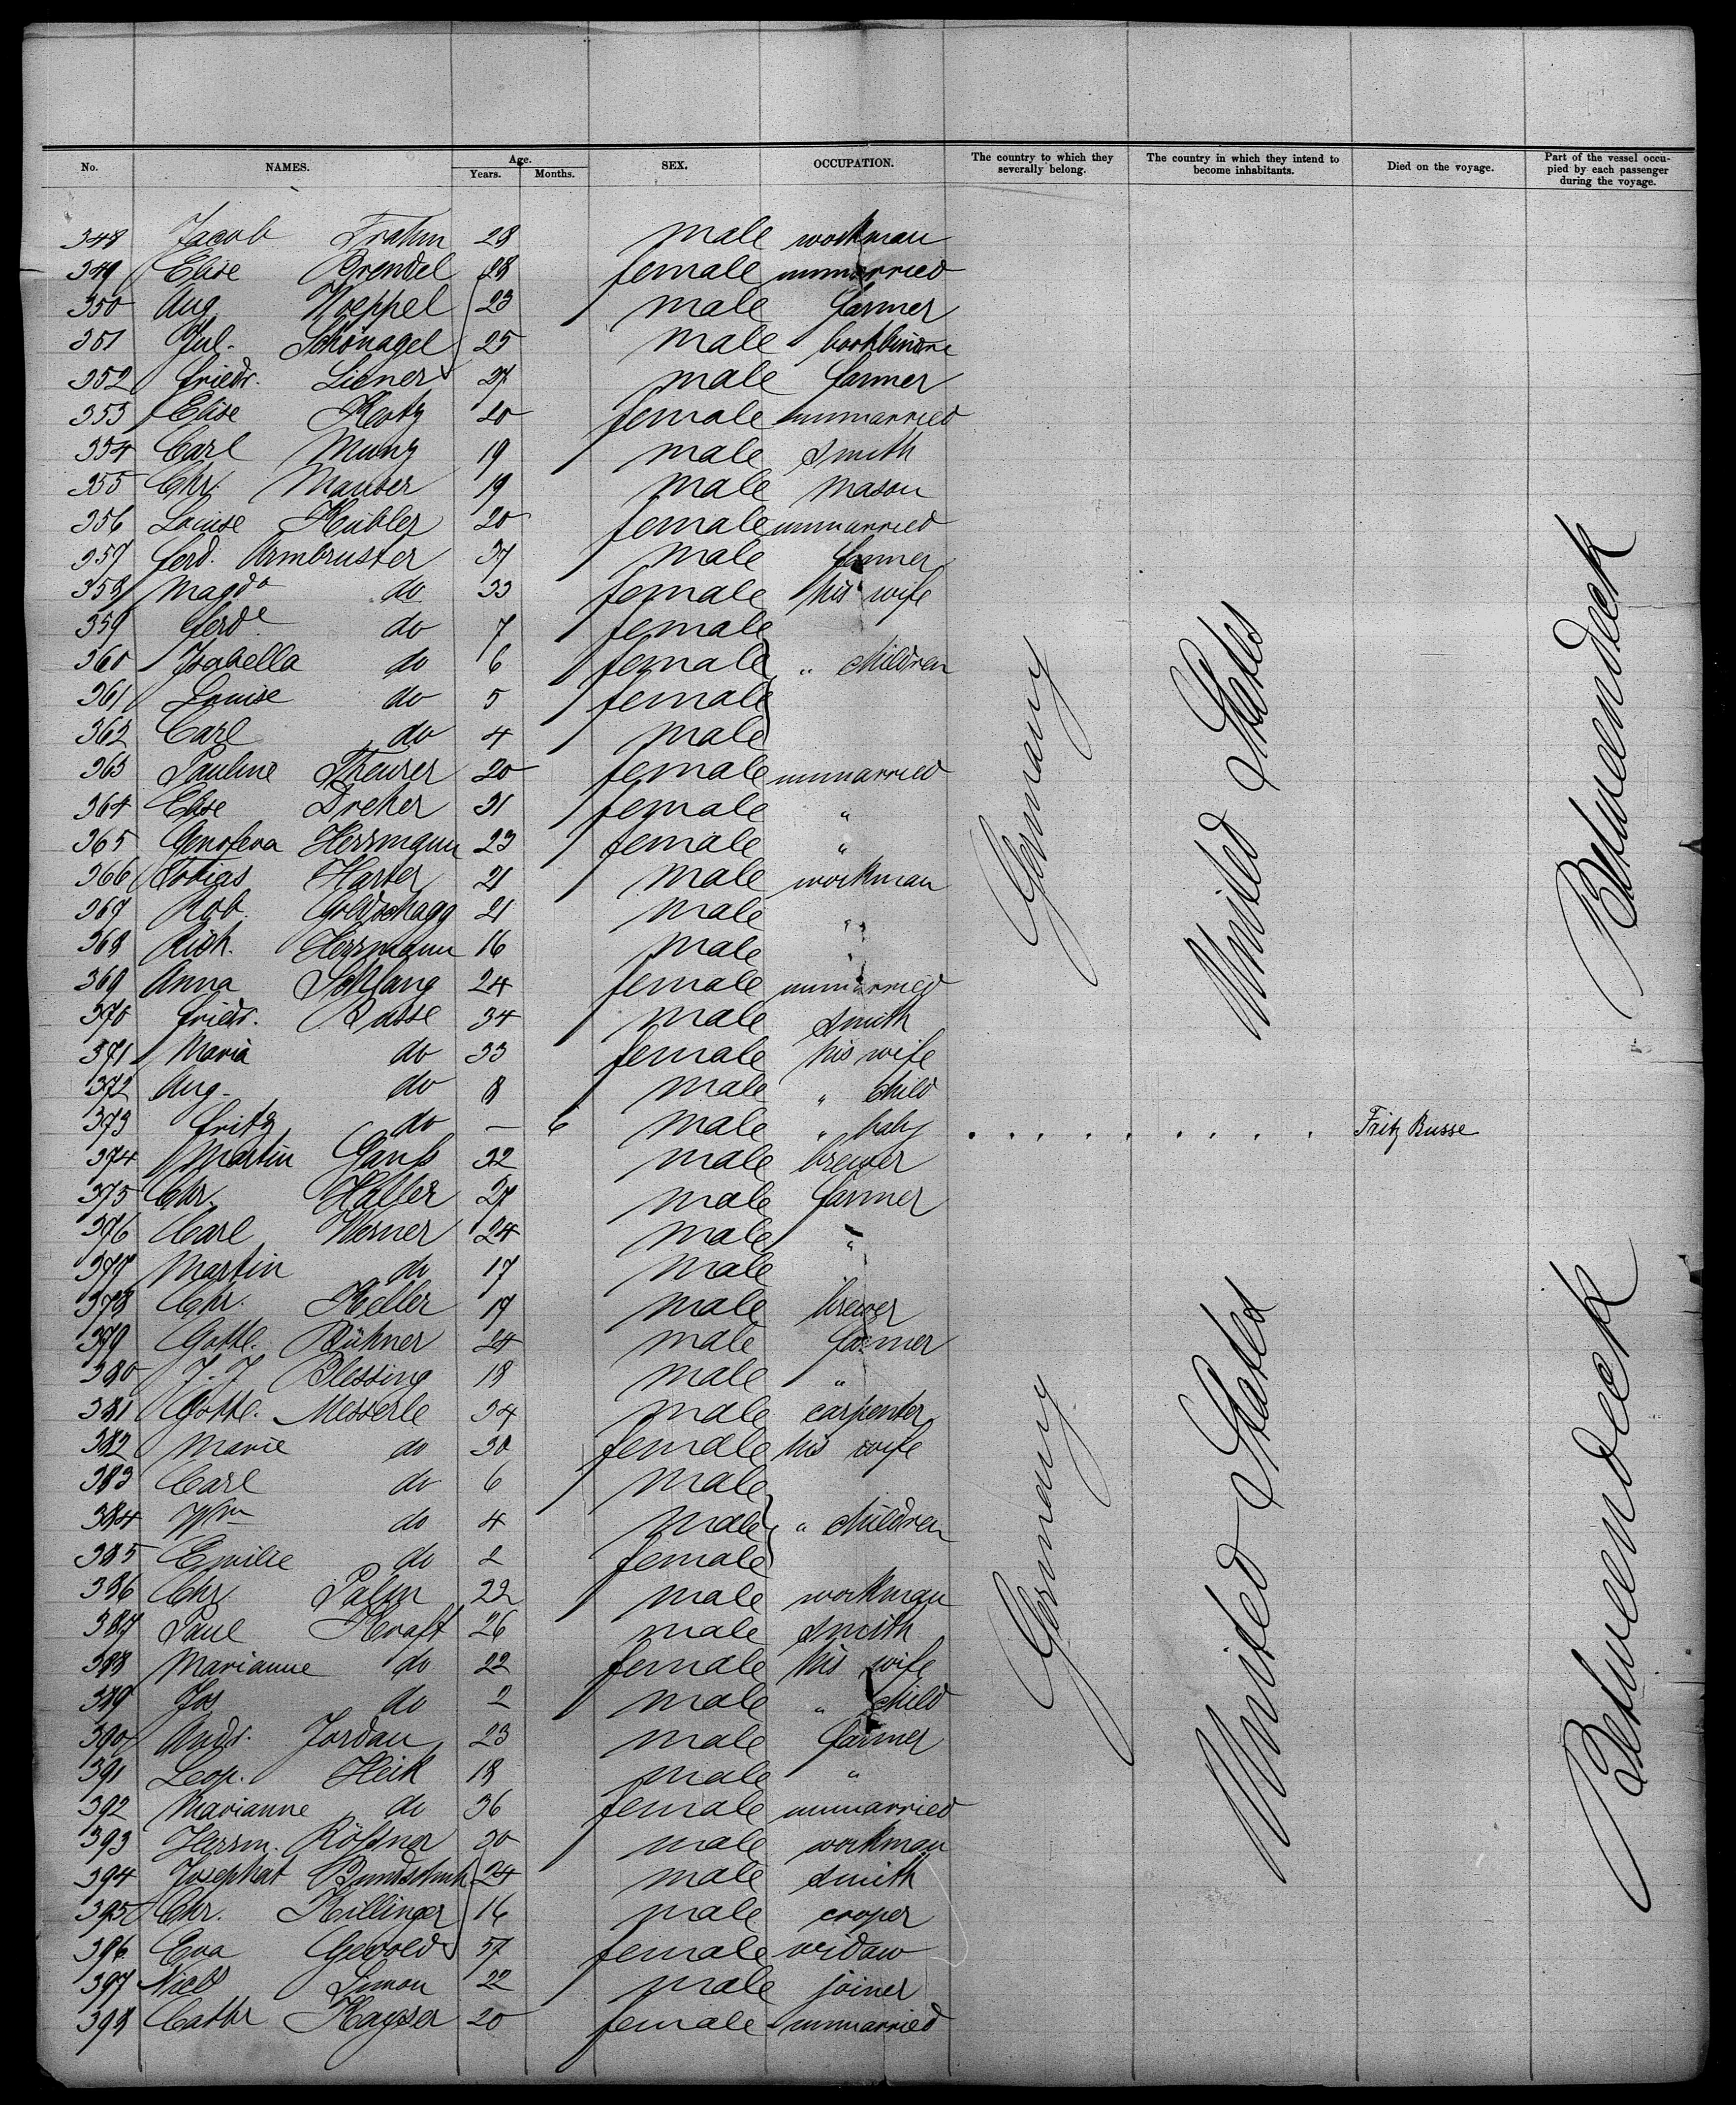 No. NAMES. Age. Years. Months. SEX. OCCUPATION. The country to which they severally belong. The country in which they intend to become inhabitants. Died on the voyage. Part of the vessel occupied by each passenger during the voyage.
348 Jacob Frahm 28 male workman
349 Elise Brendel 28 female unmarried
350 Aug Hoeppel 23 male farmer
351 Jul. Schönagel 25 male
352 Friedr. Liener 27 male farmer
353 Elise 20 female unmarried
354 Carl Munz 19 male smith
355 Chr. Mauser 19 male mason
356 Louise Kübler 20 female unmarried
357 Ferd. Armbruster 37 male farmer
358 Magda do 33 female his wife
359 Ferde do 7 female
360 Isabella do 6 female " children
361 Louise do 5 female
362 Carl do 4 male
363 Pauline Theurer 20 female unmarried
364 Elise Dreher 31 female "
365 Genofeva Herrmann 23 female "
366 Tobias Harter 21 male workman
367 Rob. Goldschagg 21 male "
368 Rich. Herrmann 16 male "
369 Anna 24 female unmarried
370 Friedr. Busse 34 male smith
371 Maria do 33 female his wife
372 Aug. do 8 male " child
373 Fritz do — 6 male " baby . . . . . . . . . . Fritz Busse
374 Martin Ganß 32 male brewer
375 Chr. Haller 27 male farmer
376 Carl Werner 24 male "
377 Martin do 17 male "
378 Chr. Keller 17 male brewer
379 Gottl. Bühner 24 male farmer
380 J. J. Blessing 18 male "
381 Gottl. Messerle 34 male carpenter
382 Marie do 30 female his wife
383 Carl do 6 male
384 Wm do 4 male " children
385 Emilie do 2 female
386 Chr Palm 22 male workman
387 Paul Kraft 26 male smith
388 Marianne do 22 female his wife
389 Jos do 2 male " child
390 Andr. Jordan 23 male farmer
391 Leop. Heik 18 male "
392 Marianne do 36 female unmarried
393 Herrm. Rößner 30 male workman
394 Josephat Bundschuh 24 male smith
395 Chr. Killinger 16 male cooper
396 Eva Gewold 57 female widaw
397 Simon 22 male joiner
398 Cathr Kayser 20 female unmarried
Germany United States Betweendeck
Germany United States Betweendeck